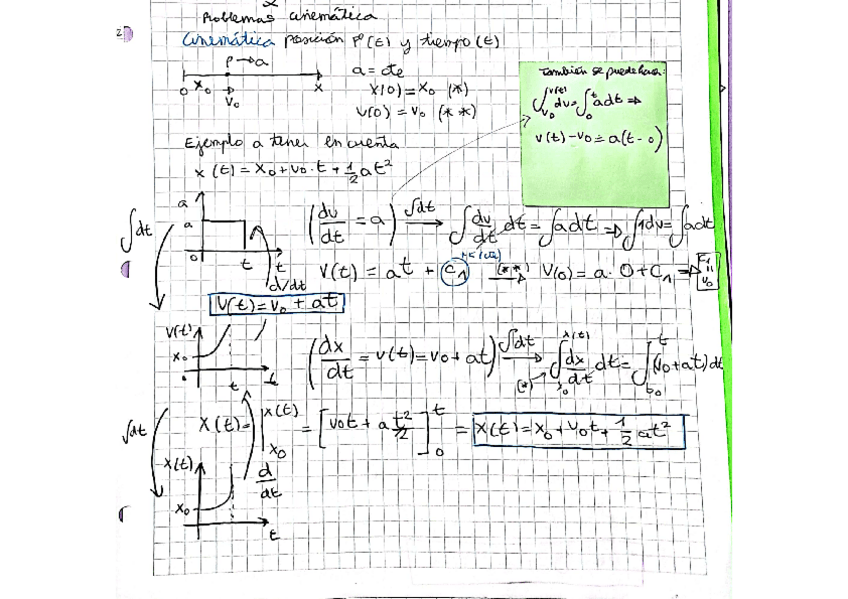 Problemas cinemática
Cinemática posición P(t) y tiempo (t)
P → a
0 x₀ → x
v₀
a = cte
x(0) = x₀ (*)
v(0) = v₀ (**)
También se puede hacer:
∫_{v₀}^{v(t)} dv = ∫_0^t a dt ⇒
v(t) - v₀ = a(t - 0)
Ejemplo a tener en cuenta
x(t) = x₀ + v₀·t + 1/2 at²
∫dt
a
a
0 t t
d/dt
(dv/dt = a) ∫dt → ∫ dv/dt dt = ∫a dt ⇒ ∫1dv = ∫a dt
v(t) = at + C₁ (**) → v(0) = a·0 + C₁ ⇒ C₁ = v₀
v(t) = v₀ + at
v(t)
x₀
t t
(dx/dt = v(t) = v₀ + at) ∫dt → (*) ∫^{x(t)} dx/dt dt = ∫^t (v₀ + at) dt
∫dt
x(t) = |_{x₀}^{x(t)} = [v₀t + a t²/2]_0^t = x(t) = x₀ + v₀t + 1/2 at²
d/dt
x(t)
x₀
t